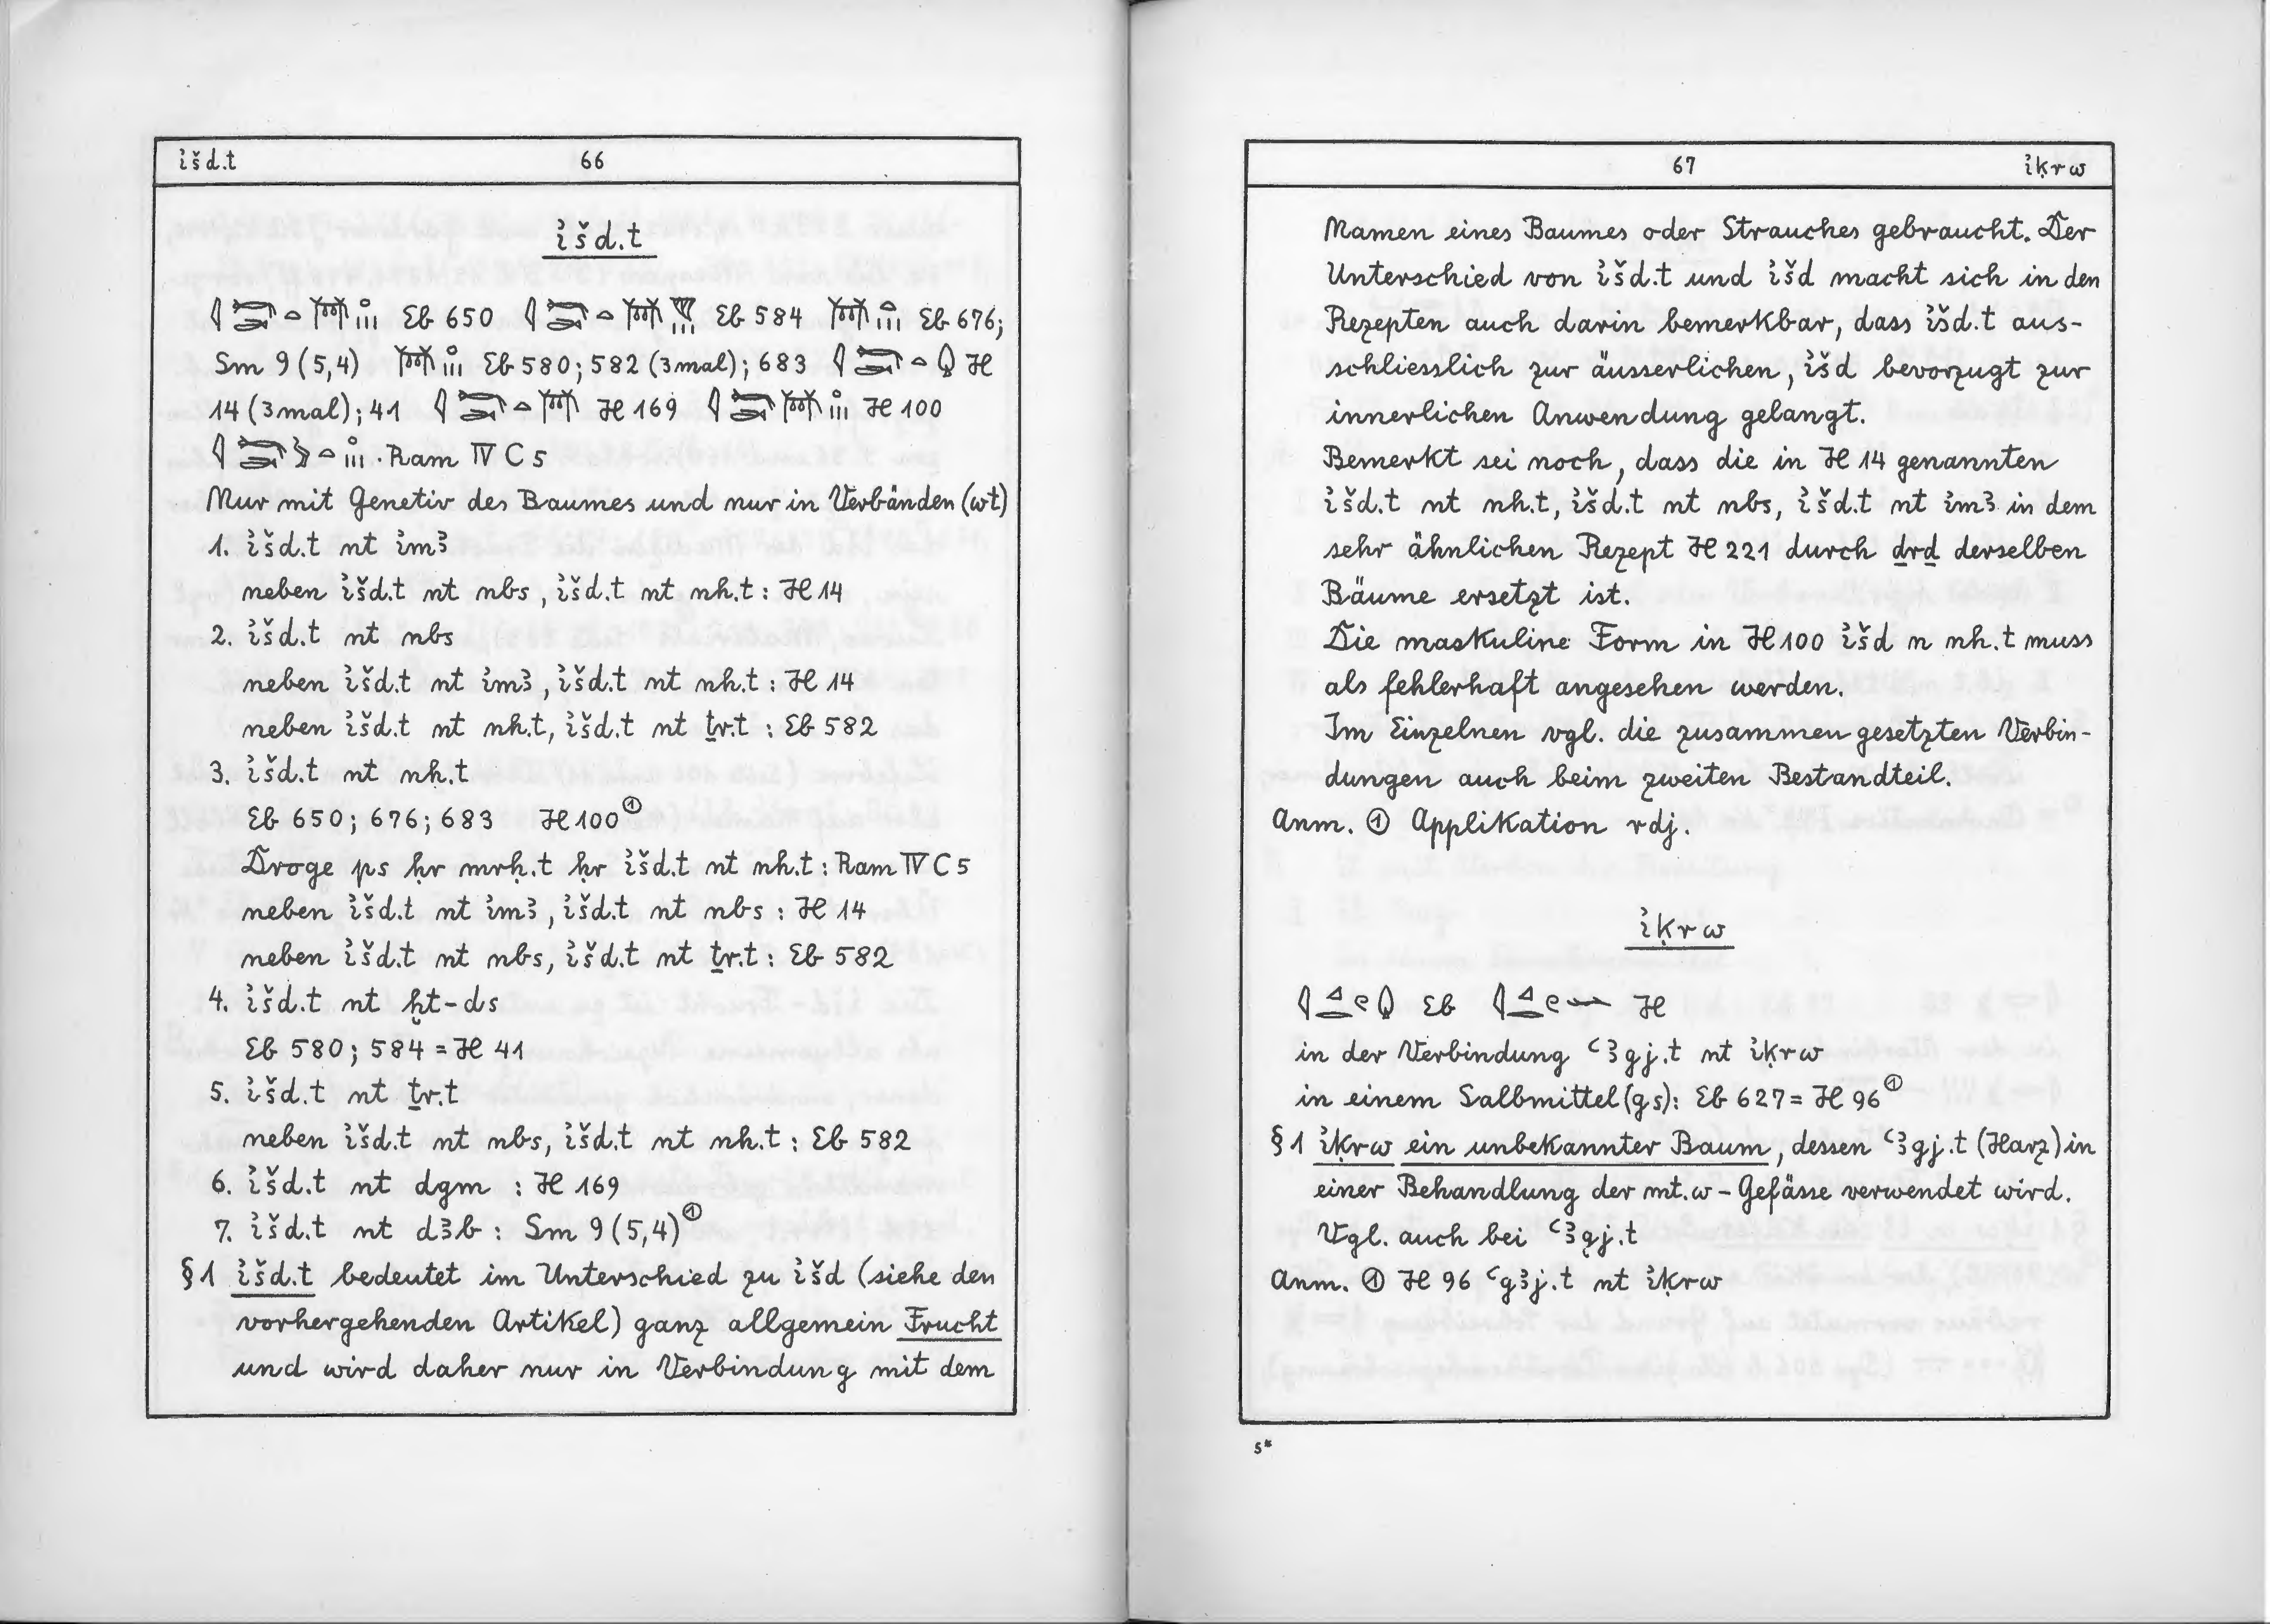 išd.t 66
išd.t
Eb 650 Eb 584 Eb 676;
Sm 9 (5,4) Eb 580; 582 (3mal); 683 H
14 (3mal); 41 H 169 H 100
. Ram IV C 5
Nur mit Genetiv des Baumes und nur in Verbänden (wt)
1. išd.t nt imꜣ
neben išd.t nt nbs, išd.t nt nh.t : H 14
2. išd.t nt nbs
neben išd.t nt imꜣ, išd.t nt nh.t : H 14
neben išd.t nt nh.t, išd.t nt ṯr.t : Eb 582
3. išd.t nt nh.t
Eb 650; 676; 683 H 100 ①
Droge ps ḥr mrḥ.t ḥr išd.t nt nh.t : Ram IV C 5
neben išd.t nt imꜣ, išd.t nt nbs : H 14
neben išd.t nt nbs, išd.t nt ṯr.t : Eb 582
4. išd.t nt ḫt-ds
Eb 580; 584 = H 41
5. išd.t nt ṯr.t
neben išd.t nt nbs, išd.t nt nh.t : Eb 582
6. išd.t nt dgm : H 169
7. išd.t nt dꜣb : Sm 9 (5,4) ①
§ 1 išd.t bedeutet im Unterschied zu išd (siehe den
vorhergehenden Artikel) ganz allgemein Frucht
und wird daher nur in Verbindung mit dem
67 iḳrw
Namen eines Baumes oder Strauches gebraucht. Der
Unterschied von išd.t und išd macht sich in den
Rezepten auch darin bemerkbar, dass išd.t aus-
schliesslich zur äusserlichen, išd bevorzugt zur
innerlichen Anwendung gelangt.
Bemerkt sei noch, dass die in H 14 genannten
išd.t nt nh.t, išd.t nt nbs, išd.t nt imꜣ in dem
sehr ähnlichen Rezept H 221 durch ḏrḏ derselben
Bäume ersetzt ist.
Die maskuline Form in H 100 išd n nh.t muss
als fehlerhaft angesehen werden.
Im Einzelnen vgl. die zusammengesetzten Verbin-
dungen auch beim zweiten Bestandteil.
Anm. ① Applikation rdj.
iḳrw
Eb H
in der Verbindung ꜥꜣgj.t nt iḳrw
in einem Salbmittel (gs): Eb 627 = H 96 ①
§ 1 iḳrw ein unbekannter Baum, dessen ꜥꜣgj.t (Harz) in
einer Behandlung der mt.w - Gefässe verwendet wird.
Vgl. auch bei ꜥꜣgj.t
Anm. ① H 96 ꜥgꜣj.t nt iḳrw
5*